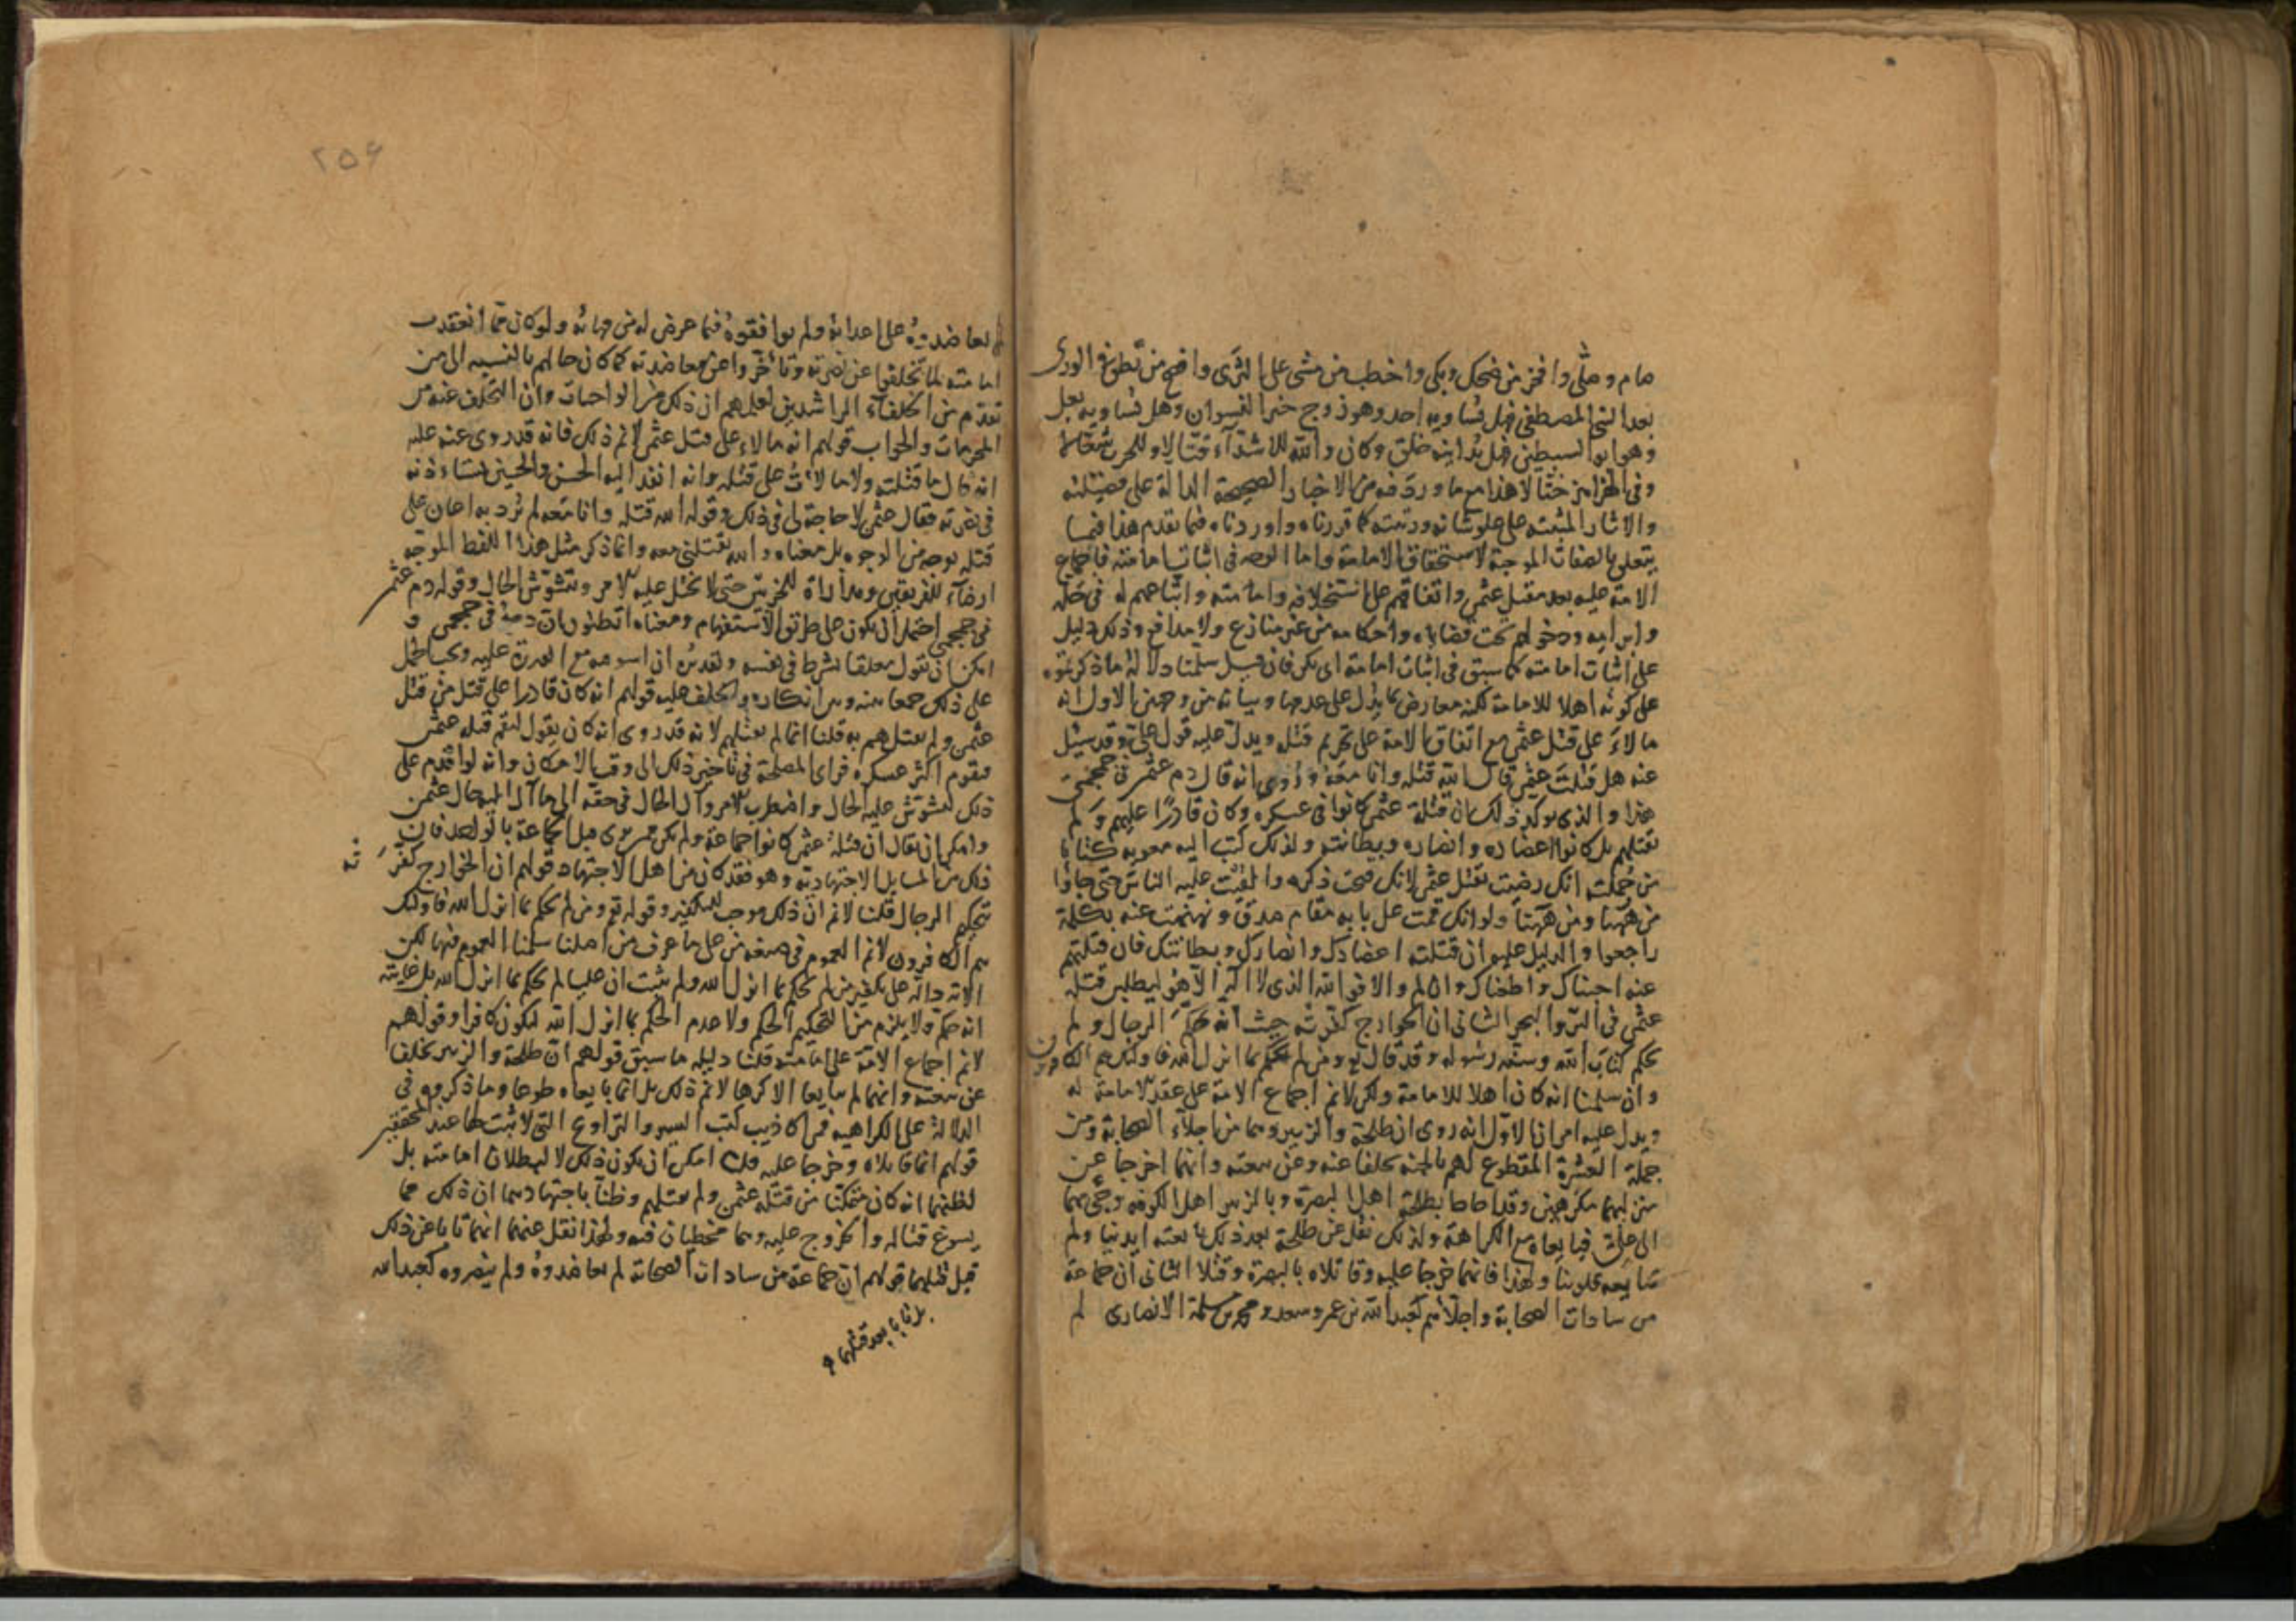 صام وصلّى وافخر من ضحك وبكى واخطب من مشى على الثرى وافصح من نطق فى الورى
بعد النبى المصطفى فهل يساويه احد وهو زوج خير النسوان وهل يساويه بعل
وهو ابو السبطين فهل يدانيه خلق وكان والله للاشدآء قتّالا وللحرب شعّالا
وفى الهزاهز ختّالا هذا مع ما ورد فيه من الاخبار الصحيحة الدالة على فضيلته
والاثار المثبتة على علو شانه ورتبته كما قررناه واوردناه فيما تقدم هذا فيما
يتعلق بالصفات الموجبة لاستحقاق الامامة واما النص فى اثبات امامته فاجماع
الامة عليه بعد مقتل عثمن واتفاقهم على استخلافه وامامته واتباعهم له فى حلّه
وابرامه ودخولهم تحت قضاياه واحكامه من غير منازع ولا مدافع وذلك دليل
على اثبات امامته كما سبق فى اثبات امامة ابى بكر فان قيل سلمنا دلالة ما ذكرتموه
على كونه اهلا للامامة لكنه معارض بما يدل على عدمها وبيانه من وجهين الاول انه
مالاء على قتل عثمن مع اتفاق الامة على تحريم قتله ويدل عليه قول على وقد سئل
عنه هل قتلت عثمن قال الله قتله وانا معه وروى انه قال دم عثمن فى جمجمتى
هذا والذى يوكد ذلك ان قتلة عثمن كانوا فى عسكره وكان قادرًا عليهم ولم
يقتلهم بل كانوا اعضاده وانصاره وبطانته ولذلك كتب اليه معويه كتابا
من جملته انك رضيت بقتل عثمن لانك قبحت ذكره والّفيت عليه الناس حتى جاؤا
من ههنا ومن ههنا ولو انك قمت على بابه مقام صدق ونهنهت عنه بكلمة
راجعوا والدليل عليه ان قتلته اعضادك وانصارك وبطانتك فان قتلتهم
عنه احبناك واطعناك وان لم والا فوالله الذى لا اله الا هو ليطلبن قتلة
عثمن فى البر والبحر الثانى ان الخوارج كفرته حيث انه حكّم الرجال ولم
يحكم كتاب الله وسنة رسوله وقد قال تع ومن لم يحكم بما انزل الله فاولئك هم الكافرون
وان سلمنا انه كان اهلا للامامة ولكن لانم اجماع الامة على عقد الامامة له
ويدل عليه امران الاول انه روى ان طلحة والزبير وهما من اجلاء الصحابة ومن
جملة العشرة المقطوع لهم بالجنة تخلفا عنه وعن بيعته وانهما اخرجا عن
منزليهما مكرهين وقد احاط بطلحة اهل البصرة وبالزبير اهل الكوفة وجئ بهما
الى على فبايعاه مع الكراهة ولذلك نقل عن طلحة بعد ذلك بايعته ايدينا ولم
تبايعه قلوبنا ولهذا فانهما خرجا عليه وقاتلاه بالبصرة وقتلا الثانى ان جماعة
من سادات الصحابة واجلائهم كعبد الله بن عمر وسعد ومحمد بن مسلمة الانصارى لم
٢٥۶
يعاضدوه على اعدائه ولم يوافقوه فيما عرض له من مهماته ولو كان ممّا انعقدت
امامته لما تخلفوا عن نصرته وتأخروا عن معاضدته كما كان حالهم بالنسبة الى من
تقدم من الخلفآء الراشدين لعلمهم ان ذلك من الواجبات وان التخلف عنه من
المحرمات والجواب قولهم انه مالاء على قتل عثمن لانم ذلك فانه قد روى عنه عليه
انه قال ما قتلت ولا مالات على قتله وانه انفذ اليه الحسن والحسين يستأذنه
فى نصرته فقال عثمن لا حاجة لى فى ذلك وقوله الله قتله وانا معه لم يرد به اعان على
قتله بوجه من الوجوه بل معناه والله يقتلنى معه وانما ذكر مثل هذا اللفظ الموجّه
ارضآء للفريقين ومداراة للحزبين حتى لا يختل عليه الامر ويتشوش الحال وقوله دم عثمن
فى جمجمتى احتمل ان يكون على طريق الاستفهام ومعناه اتظنون ان دمه فى جمجمتى و
امكن ان يقول معلقا بشرط فى نفسه وتقديره ان لم ... مع القدرة عليه ويجب الحمل
على ذلك جمعا بينه وبين انكاره والحلف عليه قولهم انه كان قادرا على قتل من قتل
عثمن ولم يقتلهم به قلنا انما لم يقتلهم لانه قد روى انه كان يقول ليقم قتلة عثمن
فيقوم اكثر عسكره فراى المصلحة فى تاخير ذلك الى وقت الامكان وانه لو اقدم على
ذلك لتشوش عليه الحال واضطرب الامر وآل الحال فى حقه الى ما آل اليه حال عثمن
وامكن ان يقال ان قتلة عثمن كانوا جماعة ولم يكن ممن يرى قتل الجماعة بالواحد فان
ذلك من المسايل الاجتهاديّة وهو فقد كان من اهل الاجتهاد قولهم ان الخوارج كفّرته
بتحكيم الرجال قلنا لانم ان ذلك موجب للتكفير وقوله تع ومن لم يحكم بما انزل الله فاولئك
هم الكافرون لانم العموم فى صيغة من على ما عرف من اصلنا سلمنا العموم فيها لكن
الاية دالة على تكفير من لم يحكم بما انزل الله ولم يثبت ان عليا لم يحكم بما انزل الله بل غايته
انه حكّم ولا يلزم من التحكيم الحكم ولا عدم الحكم بما انزل الله ليكون كافرا وقولهم
لانم اجماع الامة على امامته قلنا دليله ما سبق قولهم ان طلحة والزبير تخلفا
عن بيعته وانهما لم يبايعا الا كرها لانم ذلك بل انما بايعاه طوعا وما ذكروه فى
الدلالة على الكراهية فمن اكاذيب كتب السير والتواريخ التى لا ثبت لها عند المحققين
قولهم انما قاتلاه وخرجا عليه قلنا امكن ان يكون ذلك لا لبطلان امامته بل
لظنهما انه كان متمكنا من قتلة عثمن ولم يقتلهم وظنا باجتهادهما ان ذلك مما
يسوغ قتاله والخروج عليه وهما مخطيان فيه ولهذا نقل عنهما انهما تابا عن ذلك
قبل قتلهما قولهم ان جماعة من سادات الصحابة لم يعاضدوه ولم ينصروه كعبد الله
بل تابا بعد قتلهما